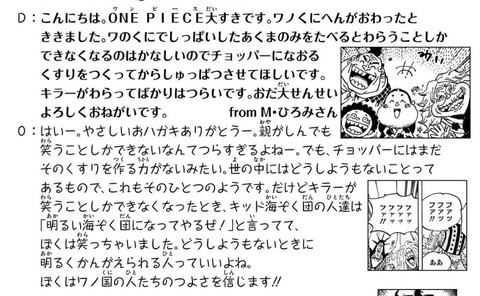 D：こんにちは。ONE PIECE大すきです。ワノくにへんがおわったと
ききました。ワのくにでしっぱいしたあくまのみをたべるとわらうことしか
できなくなるのはかなしいのでチョッパーになおる
くすりをつくってからしゅっぱつさせてほしいです。
キラーがわらってばかりはつらいです。おだ大せんせい
よろしくおねがいです。 from M・ひろみさん
O：はいー。やさしいおハガキありがとうー。親がしんでも
笑うことしかできないなんてつらすぎるよねー。でも、チョッパーにはまだ
そのくすりを作る力がないみたい。世の中にはどうしようもないことって
あるもので、これもそのひとつのようです。だけどキラーが
笑うことしかできなくなったとき、キッド海ぞく団の人達は
「明るい海ぞく団になってやるぜ！」と言ってて、
ぼくは笑っちゃいました。どうしようもないときに
明るくかんがえられる人っていいよね。
ぼくはワノ国の人たちのつよさを信じます!!
ファッファッファッ!!
ファッファッファッ
ああ